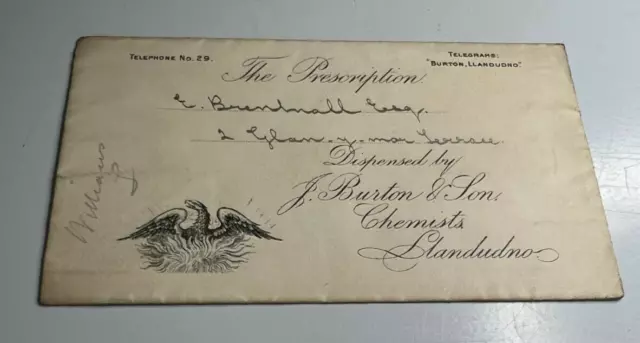 TELEPHONE No. 29.
TELEGRAMS:
"BURTON, LLANDUDNO."
The Prescription.
E. Brentnall Esq,
2 Glan-y-mor Terrace
Dispensed by
J. Burton & Son,
Chemists
Llandudno.
Williams